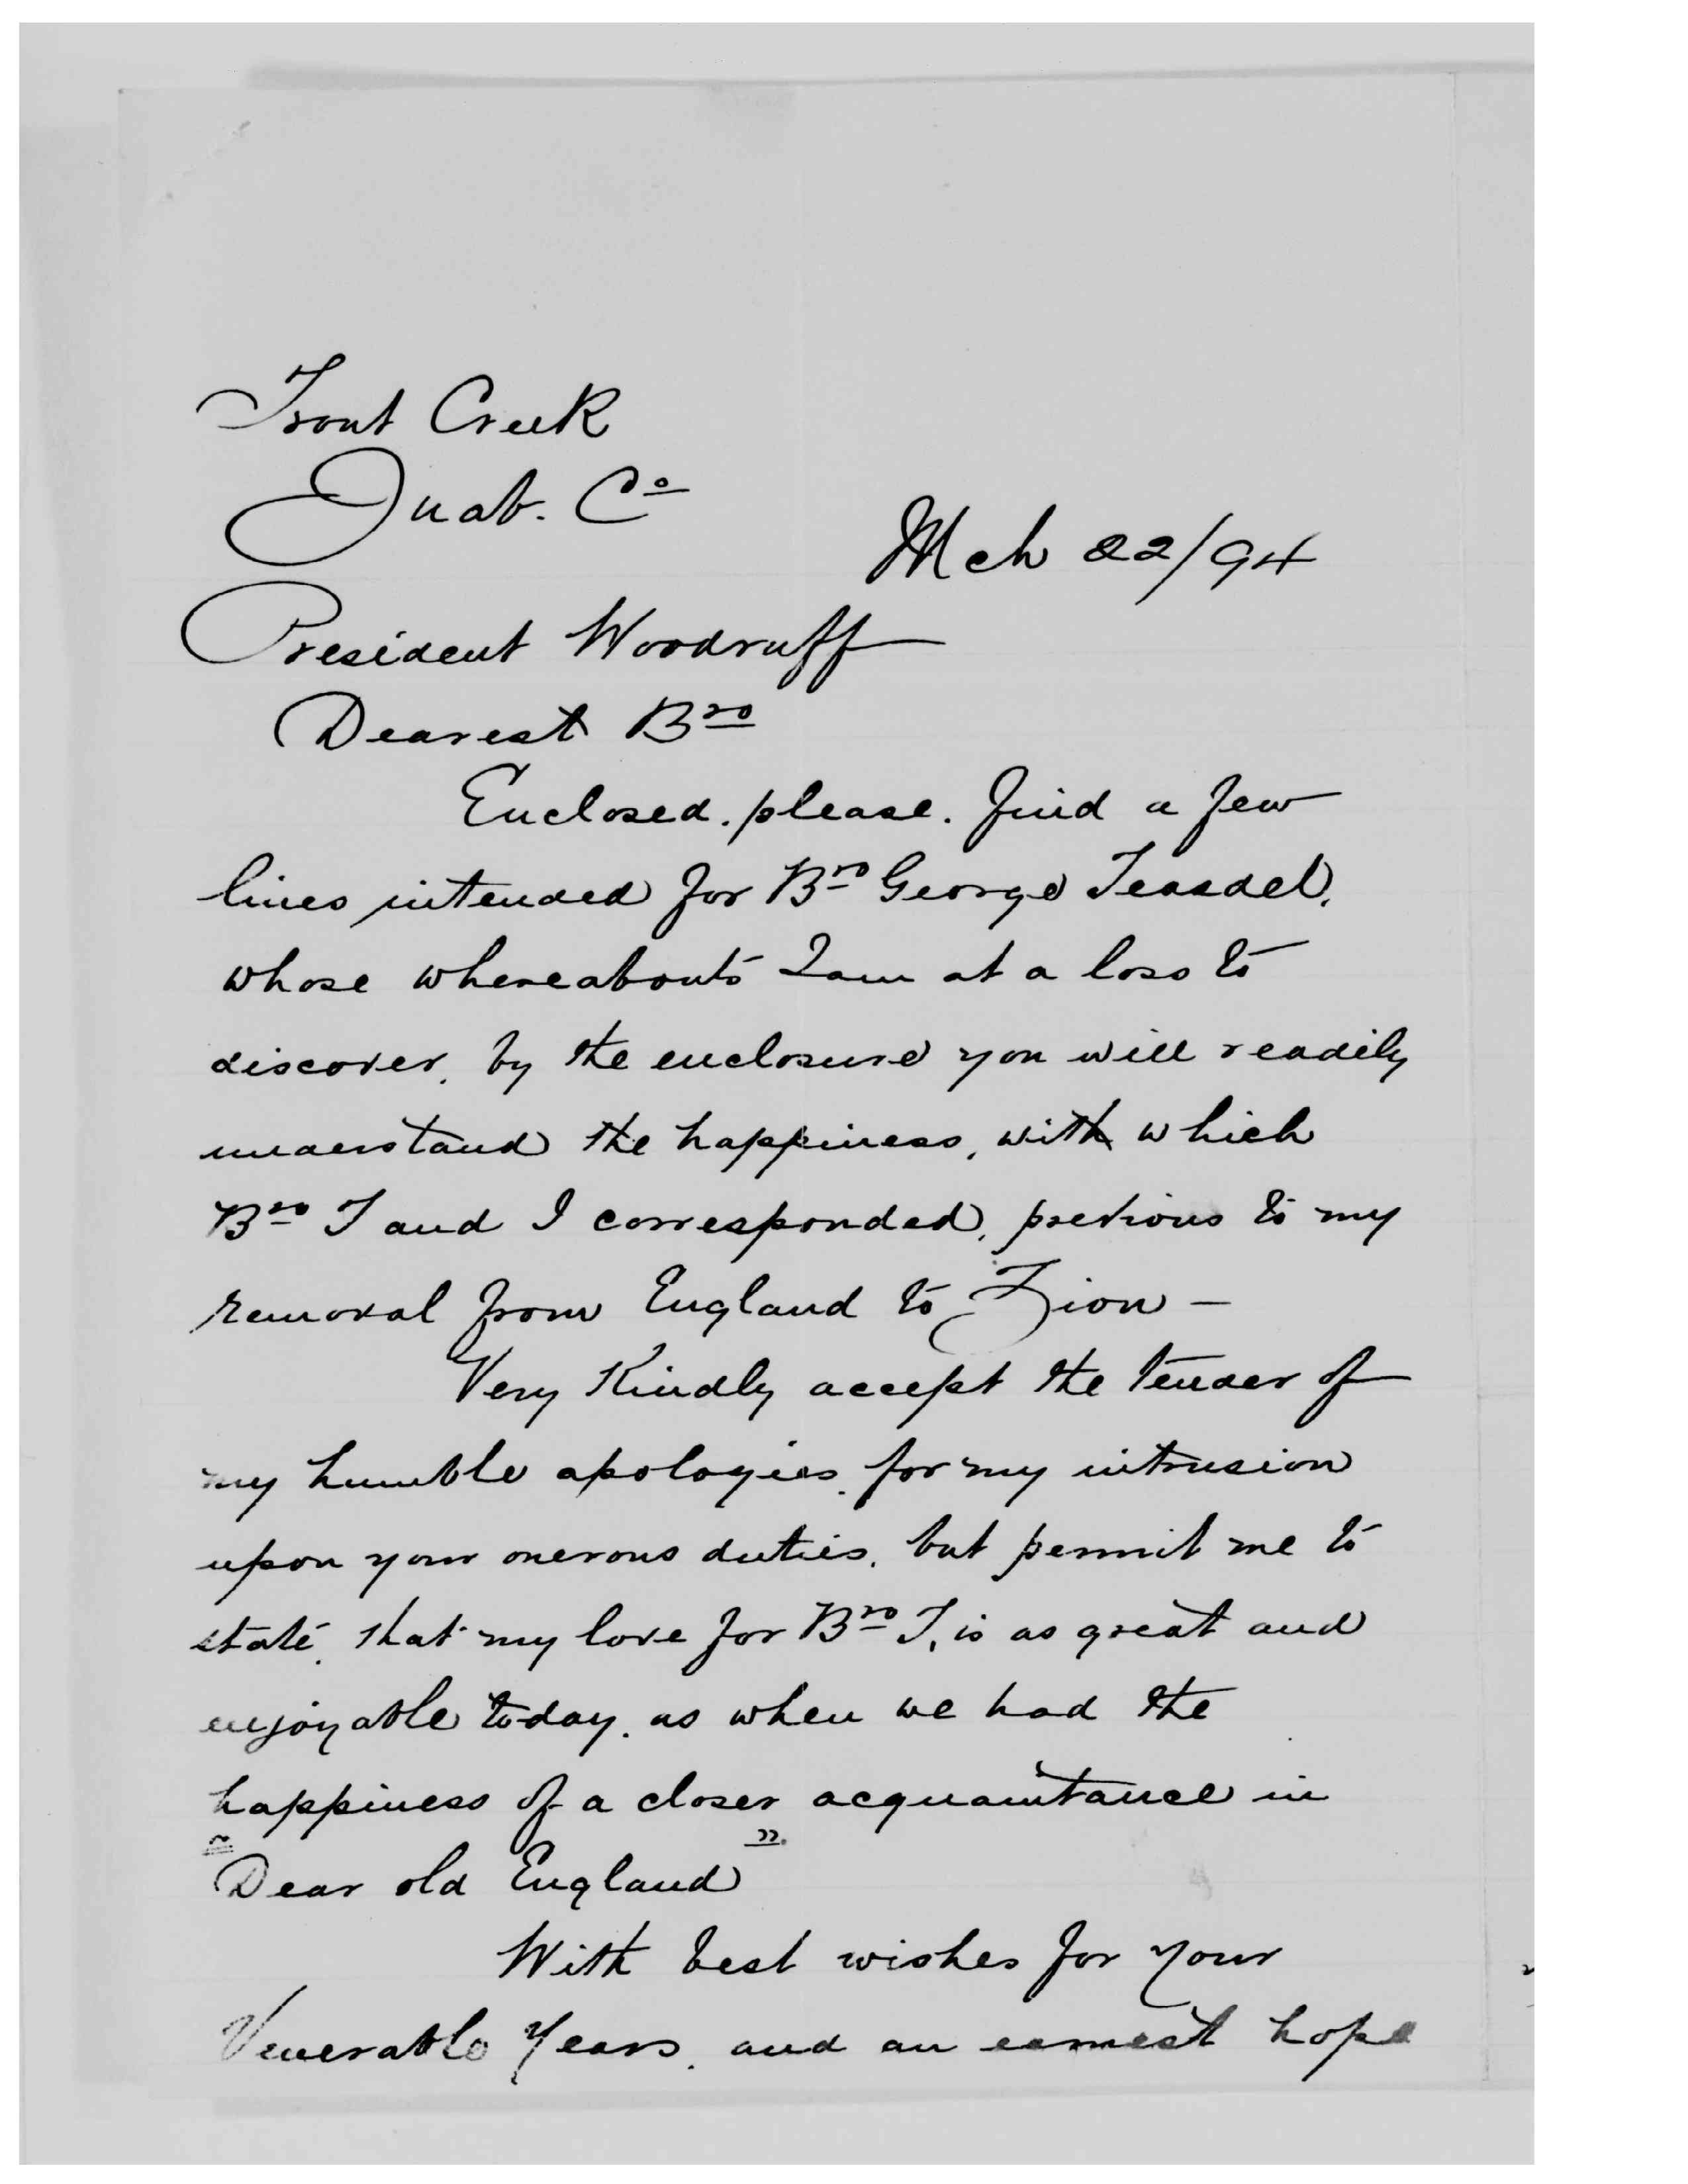 Trout Creek
Juab. Co
Mch 22/94
President Woodruff
Dearest Bro
Enclosed. please. find a few
lines intended for Bro George Teasdel,
whose whereabouts I am at a loss to
discover, by the enclosure you will readily
understand the happiness, with which
Bro T and I corresponded, previous to my
removal from England to Zion —
Very Kindly accept the tender of
my humble apologies, for my intrusion
upon your onerous duties, but permit me to
state, that my love for Bro T, is as great and
enjoyable today. as when we had the
happiness of a closer acquaintance in
"Dear old England".
With best wishes for your
Venerable Years, and an earnest hope